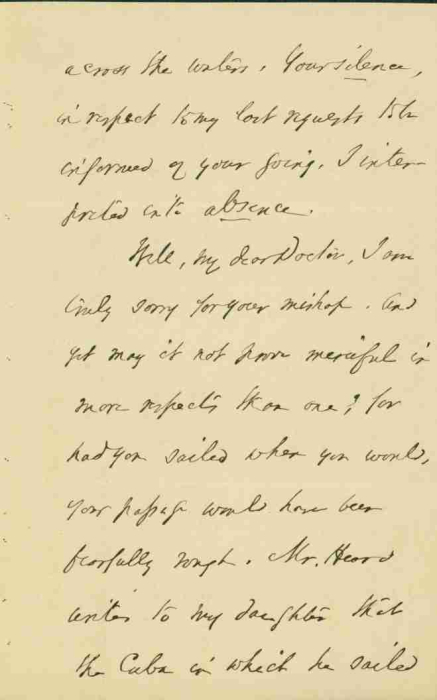 across the waters. Your silence,
in respect to my last requests to be
informed of your going, I inter-
preted into absence.
Well, my dear Doctor, I am
truly sorry for your mishap. And
yet may it not prove merciful in
more respects than one; for
had you sailed when you would,
your passage would have been
fearfully rough. Mr. Heard
writes to my daughter that
the Cuba in which he sailed